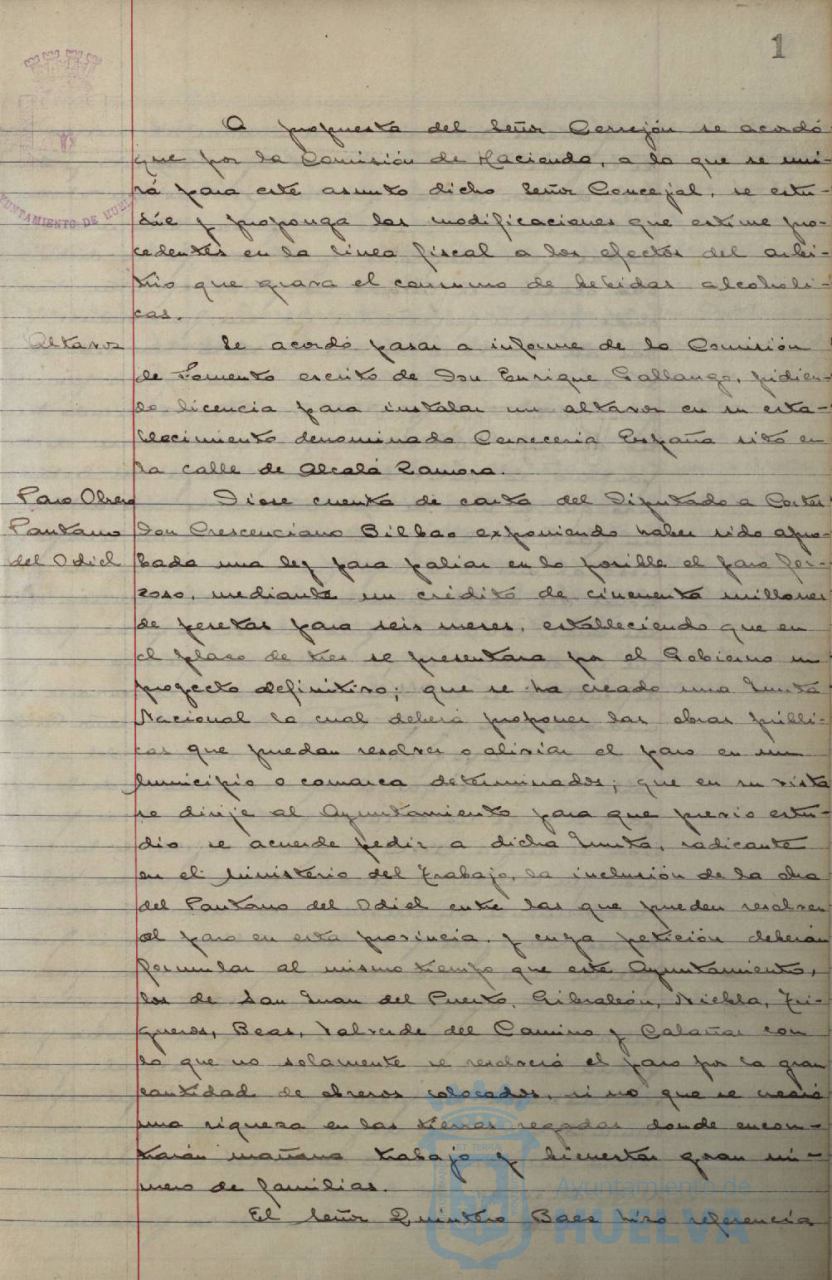 1
AYUNTAMIENTO DE HUEL
A propuesta del Señor Cerrejón se acordó
que por la Comisión de Hacienda, a la que se uni-
rá para este asunto dicho Señor Concejal, se estu-
die y proponga las modificaciones que estime pro-
cedentes en la línea fiscal a los efectos del arbi-
trio que grava el consumo de bebidas alcoholi-
cas.
Altavoz
Se acordó pasar a informe de la Comisión
de Fomento escrito de Don Enrique Gallango, pidien-
do licencia para instalar un altavoz en su esta-
blecimiento denominado Cerveceria España sito en
la calle de Alcalá Zamora.
Paro Obrero
Pantano
del Odiel
Diose cuenta de carta del Diputado a Cortes
Don Crescenciano Bilbao exponiendo haber sido apro-
bada una ley para paliar en lo posible el paro for-
zoso, mediante un crédito de cincuenta millones
de pesetas para seis meses, estableciendo que en
el plazo de tres se presentara por el Gobierno un
proyecto definitivo; que se ha creado una Junta
Nacional la cual deberá proponer las obras públi-
cas que puedan resolver o aliviar el paro en un
Municipio o comarca determinados; que en su vista
se dirije al Ayuntamiento para que previo estu-
dio se acuerde pedir a dicha Junta, radicante
en el Ministerio del Trabajo, la inclusión de la obra
del Pantano del Odiel entre las que pueden resolver
el paro en esta provincia, y cuya petición deberán
formular al mismo tiempo que este Ayuntamiento,
los de San Juan del Puerto, Gibraleón, Niebla, Tri-
gueros, Beas, Valverde del Camino y Calañas con
lo que no solamente se resolverá el paro por la gran
cantidad de obreros colocados, si no que se creará
una riqueza en las tierras regadas donde encon-
trarán mañana trabajo y bienestar gran nú-
mero de familias.
El Señor Quintero Baez hizo referencia
Ayuntamiento de
HUELVA